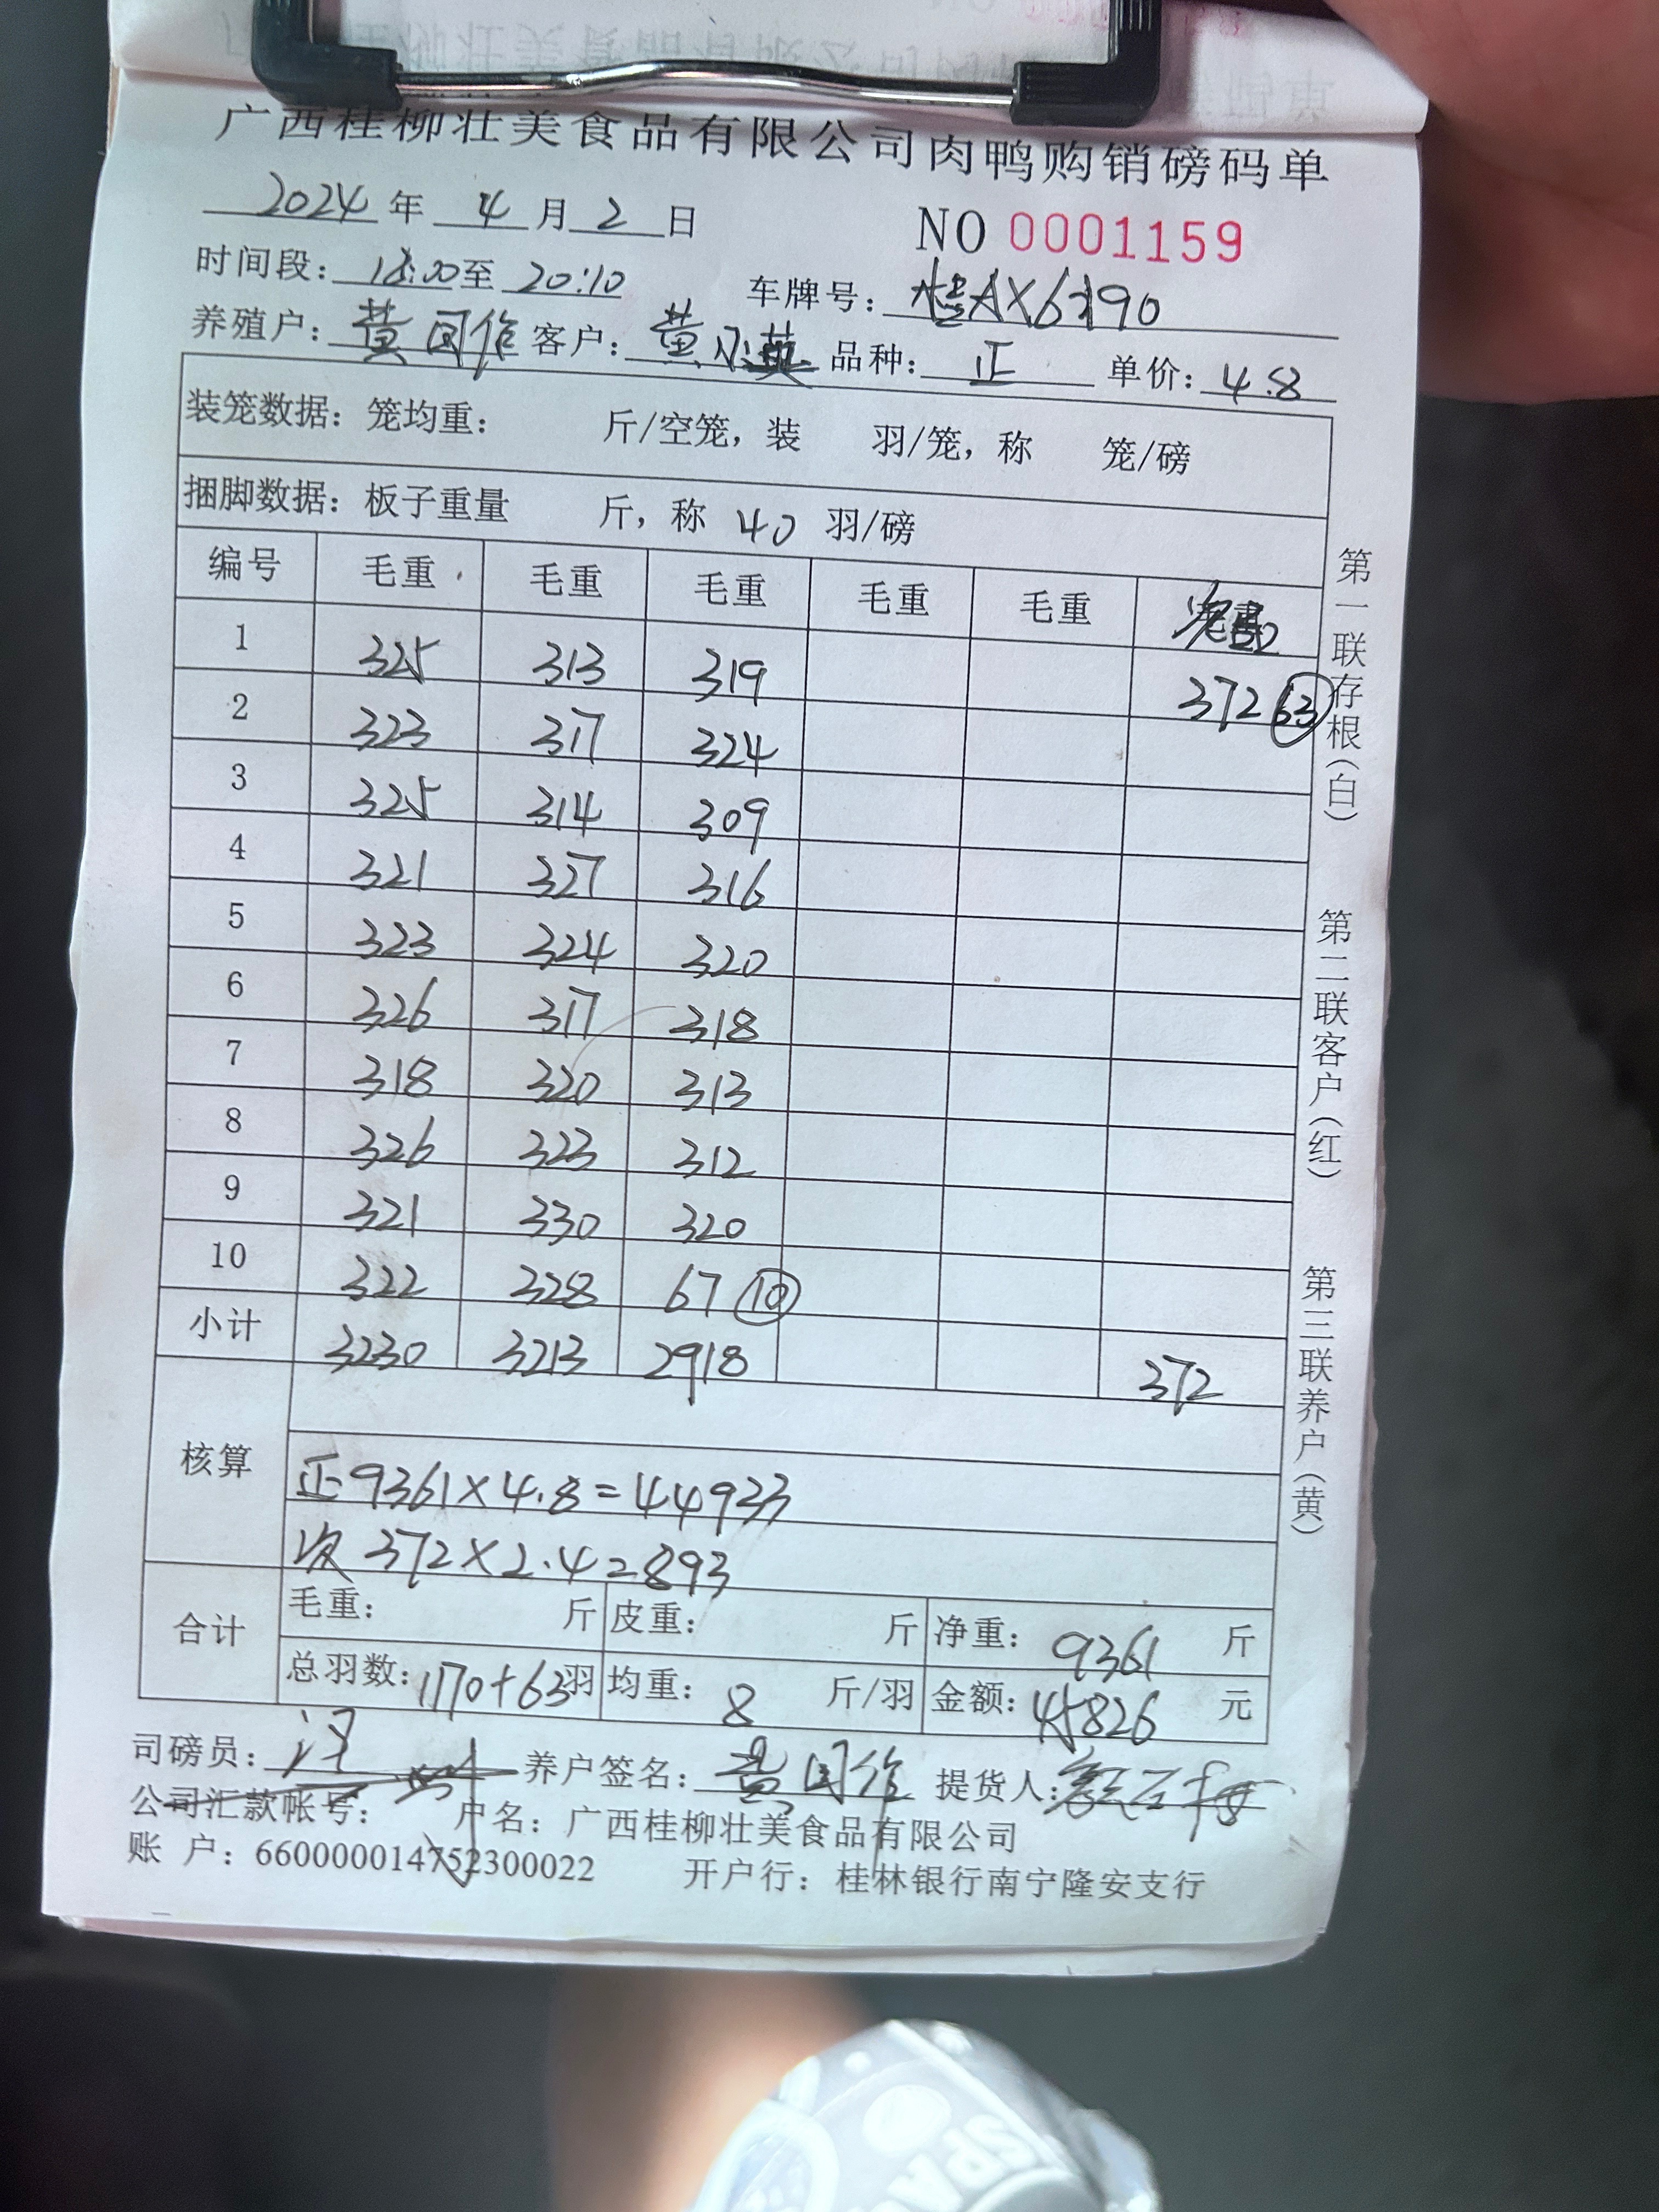 广西桂柳壮美食品有限公司肉鸭购销磅码单
2024 年 4 月 2 日 NO 0001159
时间段: 18:00 至 20:10 车牌号: 桂AX6190
养殖户: 黄国作 客户: 黄小英 品种: 正 单价: 4.8
装笼数据: 笼均重: 斤/空笼, 装 羽/笼, 称 笼/磅
捆脚数据: 板子重量 斤, 称 40 羽/磅
编号 毛重 毛重 毛重 毛重 毛重
1 325 313 319 372 63
2 323 317 324
3 325 314 309
4 321 327 316
5 323 324 320
6 326 317 318
7 318 320 313
8 326 323 312
9 321 330 320
10 322 328 67 10
小计 3230 3213 2918 372
核算
正 9361×4.8=44933
次 372×2.4=893
合计
毛重: 斤 皮重: 斤 净重: 9361 斤
总羽数: 1170+63 羽 均重: 8 斤/羽 金额: 45826 元
司磅员: 养户签名: 黄国作 提货人:
公司汇款帐号: 户名: 广西桂柳壮美食品有限公司
账 户: 660000014752300022 开户行: 桂林银行南宁隆安支行
第一联存根(白) 第二联客户(红) 第三联养户(黄)